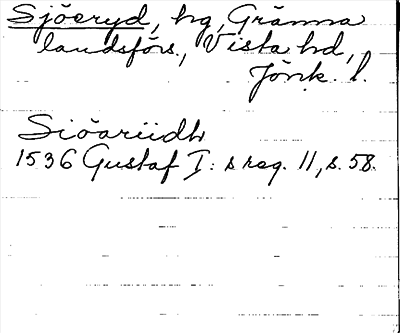 Sjöeryd, hg, Gränna
landsförs., Vista hd,
Jönk. l.
Siöariidh
1536 Gustaf I: s reg. 11, s. 58.